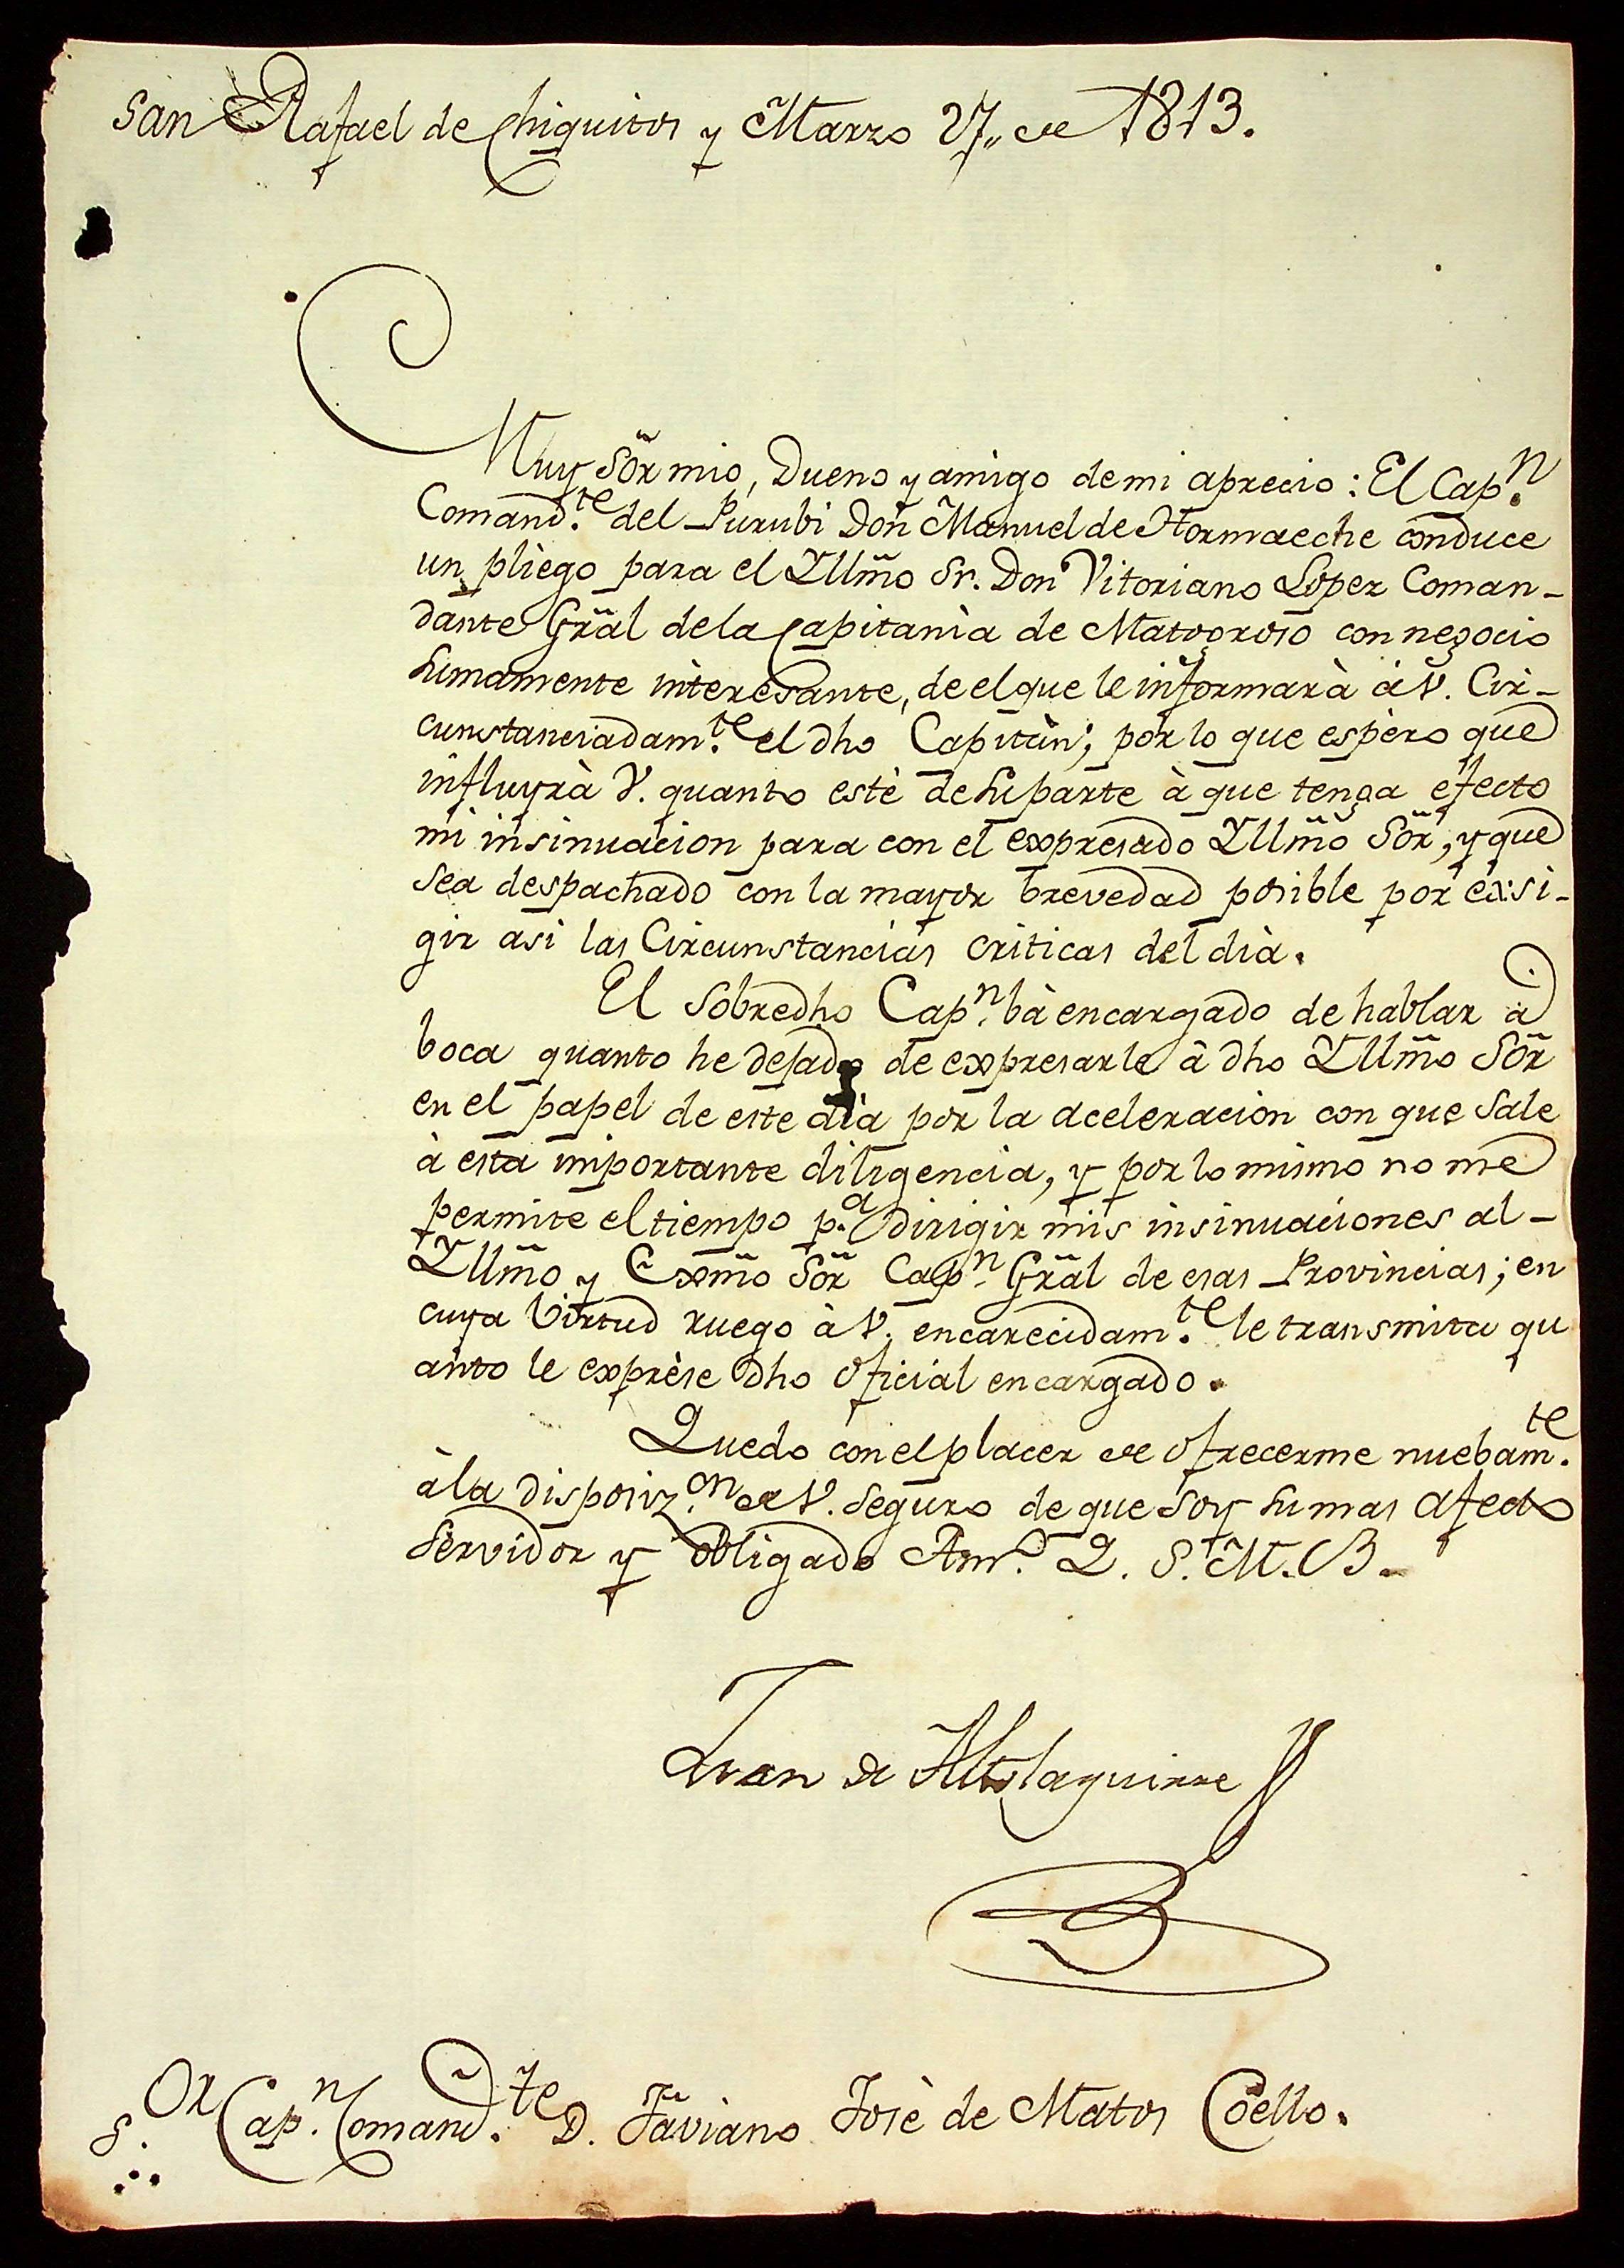 San Rafael de Chiquitos y Marzo 27,, de 1813.
Muy Sõr mio, Dueno y amigo de mi aprecio: El Cap.n
Comand.te del Purubi Don Manuel de Hormaeche conduce
un pliego para el Yllm̃o Sr. Don Vitoriano Lopez Coman-
dante Gr̃al dela Capitanìa de Matogroso con negocio
sumamente interesante, de el que le informarà à V. Cir-
cunstanciadam.te el dho Capitàn; por lo que espèro que
influyrà V. quanto estè de su parte à que tenga efecto
mi insinuacion para con el expresado Yllm̃o Sõr, y que
sea despachado con la mayor brevedad posible por exsi-
gir asi las Circunstancias criticas del dia.
El sobredho Cap.n bà encargado de hablar à
boca quanto he dejado de expresarle à dho Yllm̃o Sõr
en el papel de este dìa por la aceleracion con que sale
à esta importante diligencia, y por lo mismo no me
permite el tiempo p.a dirigir mis insinuaciones al-
Yllm̃o y Exm̃o Sõr Cap.n Gr̃al de esas Provincias; en
cuya virtud ruego à V. encarecidam.te le transmita qu
anto le exprèse dho Oficial encargado.
Quedo con el placer de ofrecerme nuebam.te
à la disposiz.on de V. seguro de que soy su mas afecto
Servidor y obligado Am.o Q. S. M. B.
Juan de Altolaguirre
S.or Cap.n Comand.te D. Faviano Josè de Matos Coello.